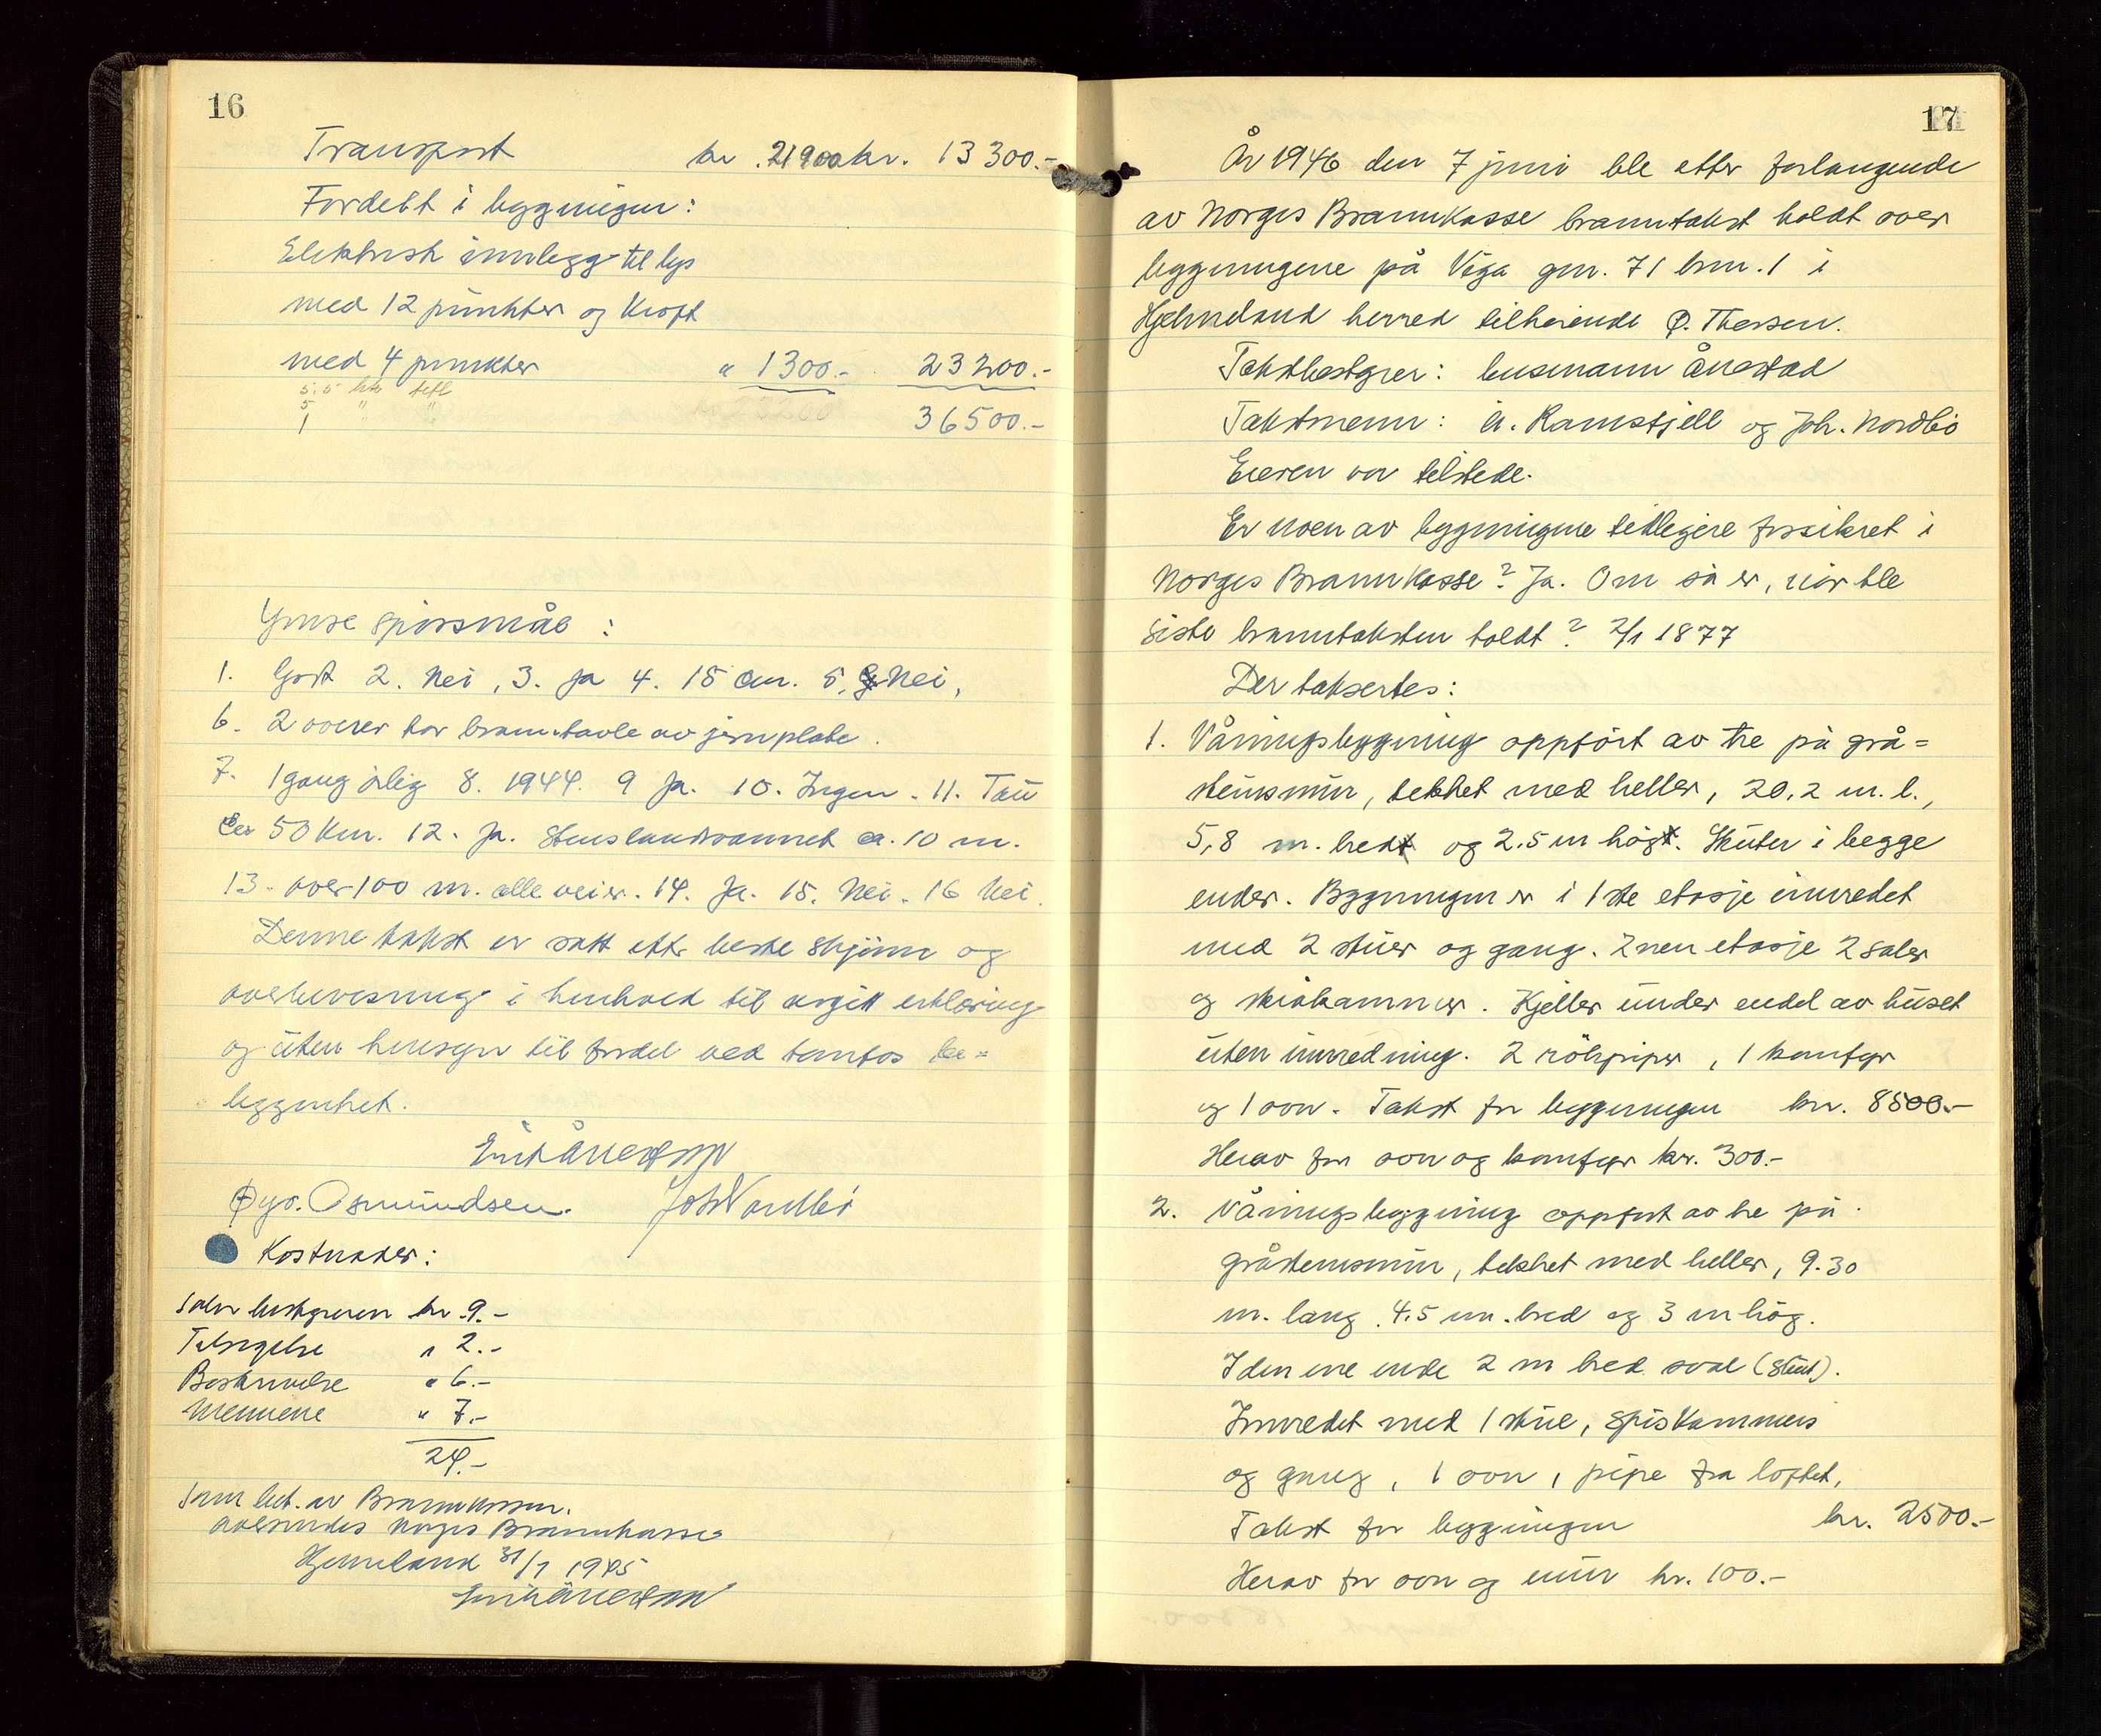 16
Transport kr. 21900 kr. 13300.-
Fordelt i bygningen:
Elektrisk innlegg til lys
med 12 punkter og kraft
med 4 punkter " 1300.- 23200.-
36500.-
Ymse spörsmål:
1. Godt 2. Nei, 3. Ja 4. 15 cm. 5. Nei,
6. 2 ovner har branntavle av jernplate.
7. 1 gang årlig 8. 1944. 9 Ja. 10. Ingen. 11. Tau
ca 50 km. 12. Ja. Stenslandsvannet ca. 10 m.
13. over 100 m. alle veier. 14. Ja. 15. Nei. 16 Nei.
Denne takst er satt etter beste skjönn og
overbevisning i henhold til avgitt erklæring
og uten hensyn til fordel ved tomtas be=
liggenhet.
Øyv. Osmundsen. Joh Nordbö
Kostnader:
kr. 9.-
" 2.-
Beskrivelse " 6.-
Mennene " 7.-
24.-
Som bet. av Brannkassen.
oversendes Norges Brannkasse
Hjelmeland 31/7 1945
17
År 1946 den 7 juni ble etter forlangende
av Norges Brannkasse branntakst holdt over
bygningene på Viga gnr. 71 bnr. 1 i
Hjelmeland herred tilhørende Ø. Thorsen.
Takstbestyrer: lensmann Ånestad
Takstmenn: A. Ramsfjell og Joh. Nordbö
Eieren var tilstede.
Er noen av bygningene tidligere forsikret i
Norges Brannkasse? Ja. Om så er, når ble
siste branntaksten holdt? 2/1 1877
Der takseres:
1. Våningsbygning oppfört av tre på grå=
steinsmur, tekket med heller, 20,2 m. l.,
5,8 m. bred og 2.5 m hög. Skuter i begge
ender. Bygningen er i 1ste etasje innredet
med 2 stuer og gang. 2nen etasje 2 saler
og skråkammer. Kjeller under endel av huset
uten innredning. 2 rökpiper, 1 komfyr
og 1 ovn. Takst for bygningen kr. 8500.-
Herav for ovn og komfyr kr. 300.-
2. Våningsbygning oppfört av tre på
gråsteinsmur, tekket med heller, 9.30
m. lang. 4.5 m. bred og 3 m hög.
I den ene ende 2 m bred sval (skut).
Innredet med 1 stue, spiskammers
og gang, 1 ovn, pipe fra loftet,
Takst for bygningen kr. 2500.-
Herav for ovn og mur kr. 100.-